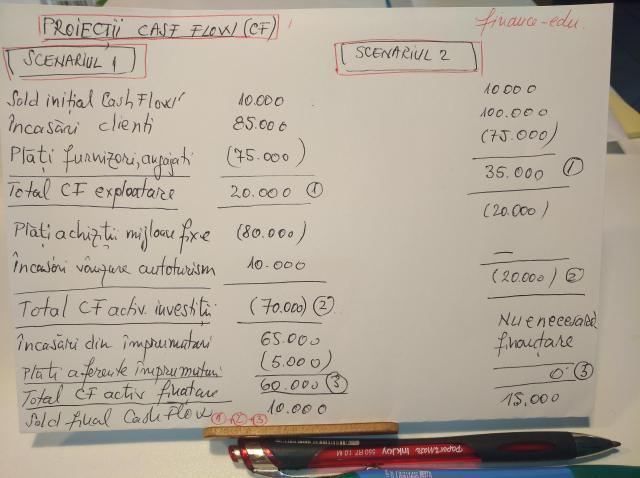 PROIECȚII CASF FLOW (CF)
finance-edu.
SCENARIUL 1
SCENARIUL 2
Sold inițial Cash Flow 10.000 10.000
Încasări clienti 85.000 100.000
Plăți furnizori, angajati (75.000) (75.000)
Total CF exploatare 20.000 ① 35.000 ①
Plăți achiziții mijloace fixe (80.000) (20.000)
Încasări vânzare autoturism 10.000 —
Total CF activ. investiții (70.000) ② (20.000) ②
Încasări din împrumuturi 65.000 Nu e necesară
Plăti aferente împrumuturi (5.000) finanțare
Total CF activ finațare 60.000 ③ 0 ③
Sold final Cash Flow ①+②+③ 10.000 15.000
PaperMate InkJoy 550 RT 1.0 M